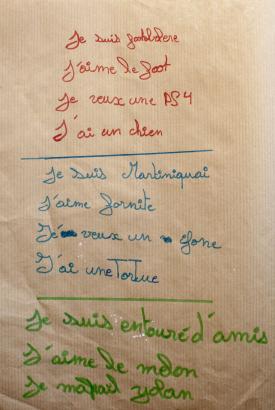 Je suis footbldere
J'aime le foot
Je veux une PS4
J'ai un chien
Je suis Martiniquai
J'aime fornite
Je veux un ifone
J'ai une Tortue
Je suis entouré d'amis
J'aime le melon
Je mapail yolan